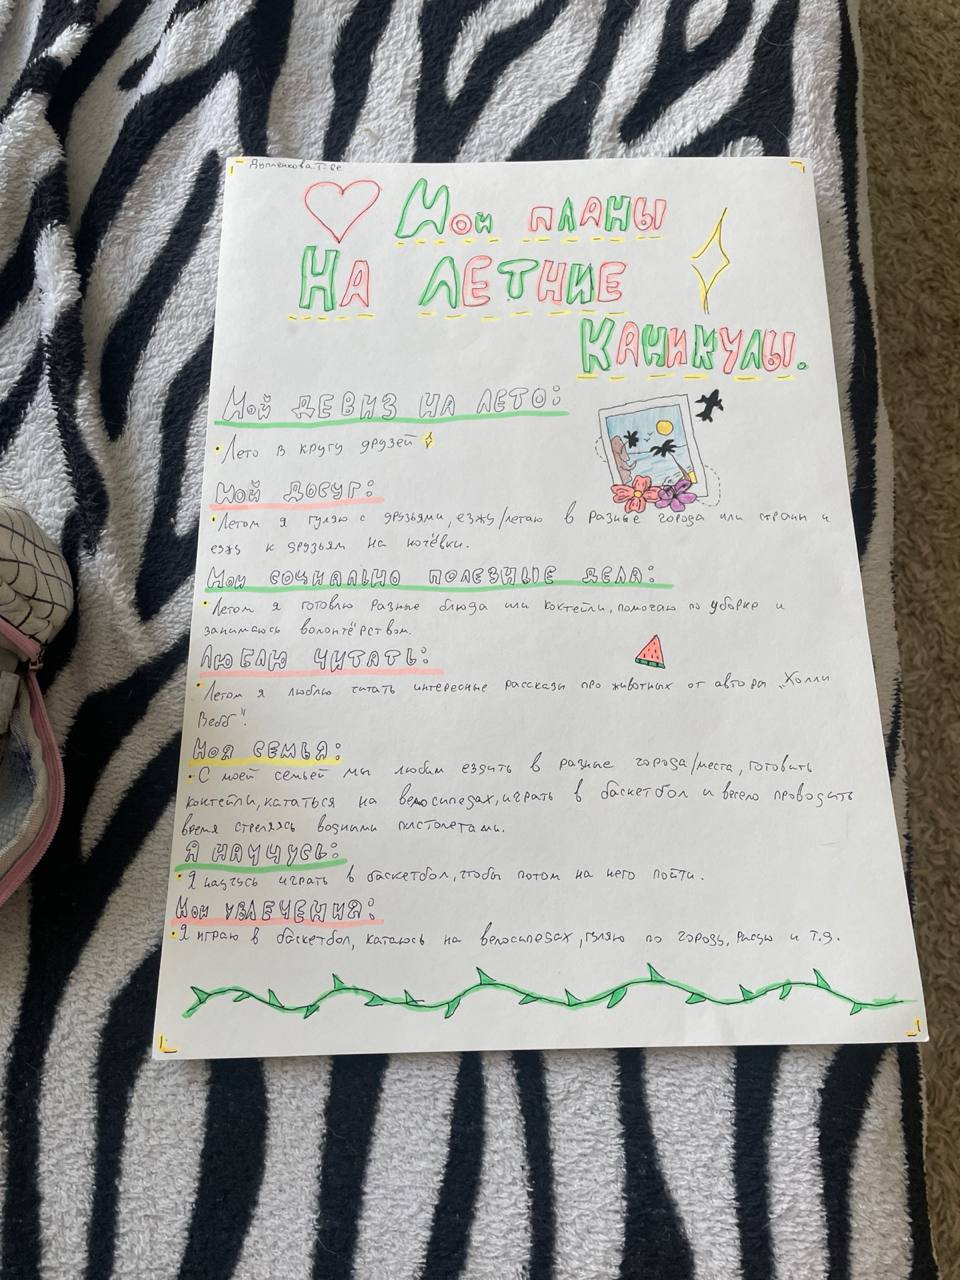 Мои планы
На летние
каникулы.
Мой девиз на лето:
• Лето в кругу друзей
Мой досуг:
• Летом я гуляю с друзьями, езжу/летаю в разные города или страны и
езжу к друзьям на ночёвки.
Мои социально полезные дела:
• Летом я готовлю разные блюда или коктейли, помогаю по уборке и
занимаюсь волонтёрством.
Люблю читать:
• Летом я люблю читать интересные рассказы про животных от автора „Холли
Вебб".
Моя семья:
• С моей семьёй мы любим ездить в разные города/места, готовить
коктейли, кататься на велосипедах, играть в баскетбол и весело проводить
время стреляясь водными пистолетами.
Я научусь:
• Я научусь играть в баскетбол, чтобы потом на него пойти.
Мои увлечения:
• Я играю в баскетбол, катаюсь на велосипедах, гуляю по городу, рисую и т.д.